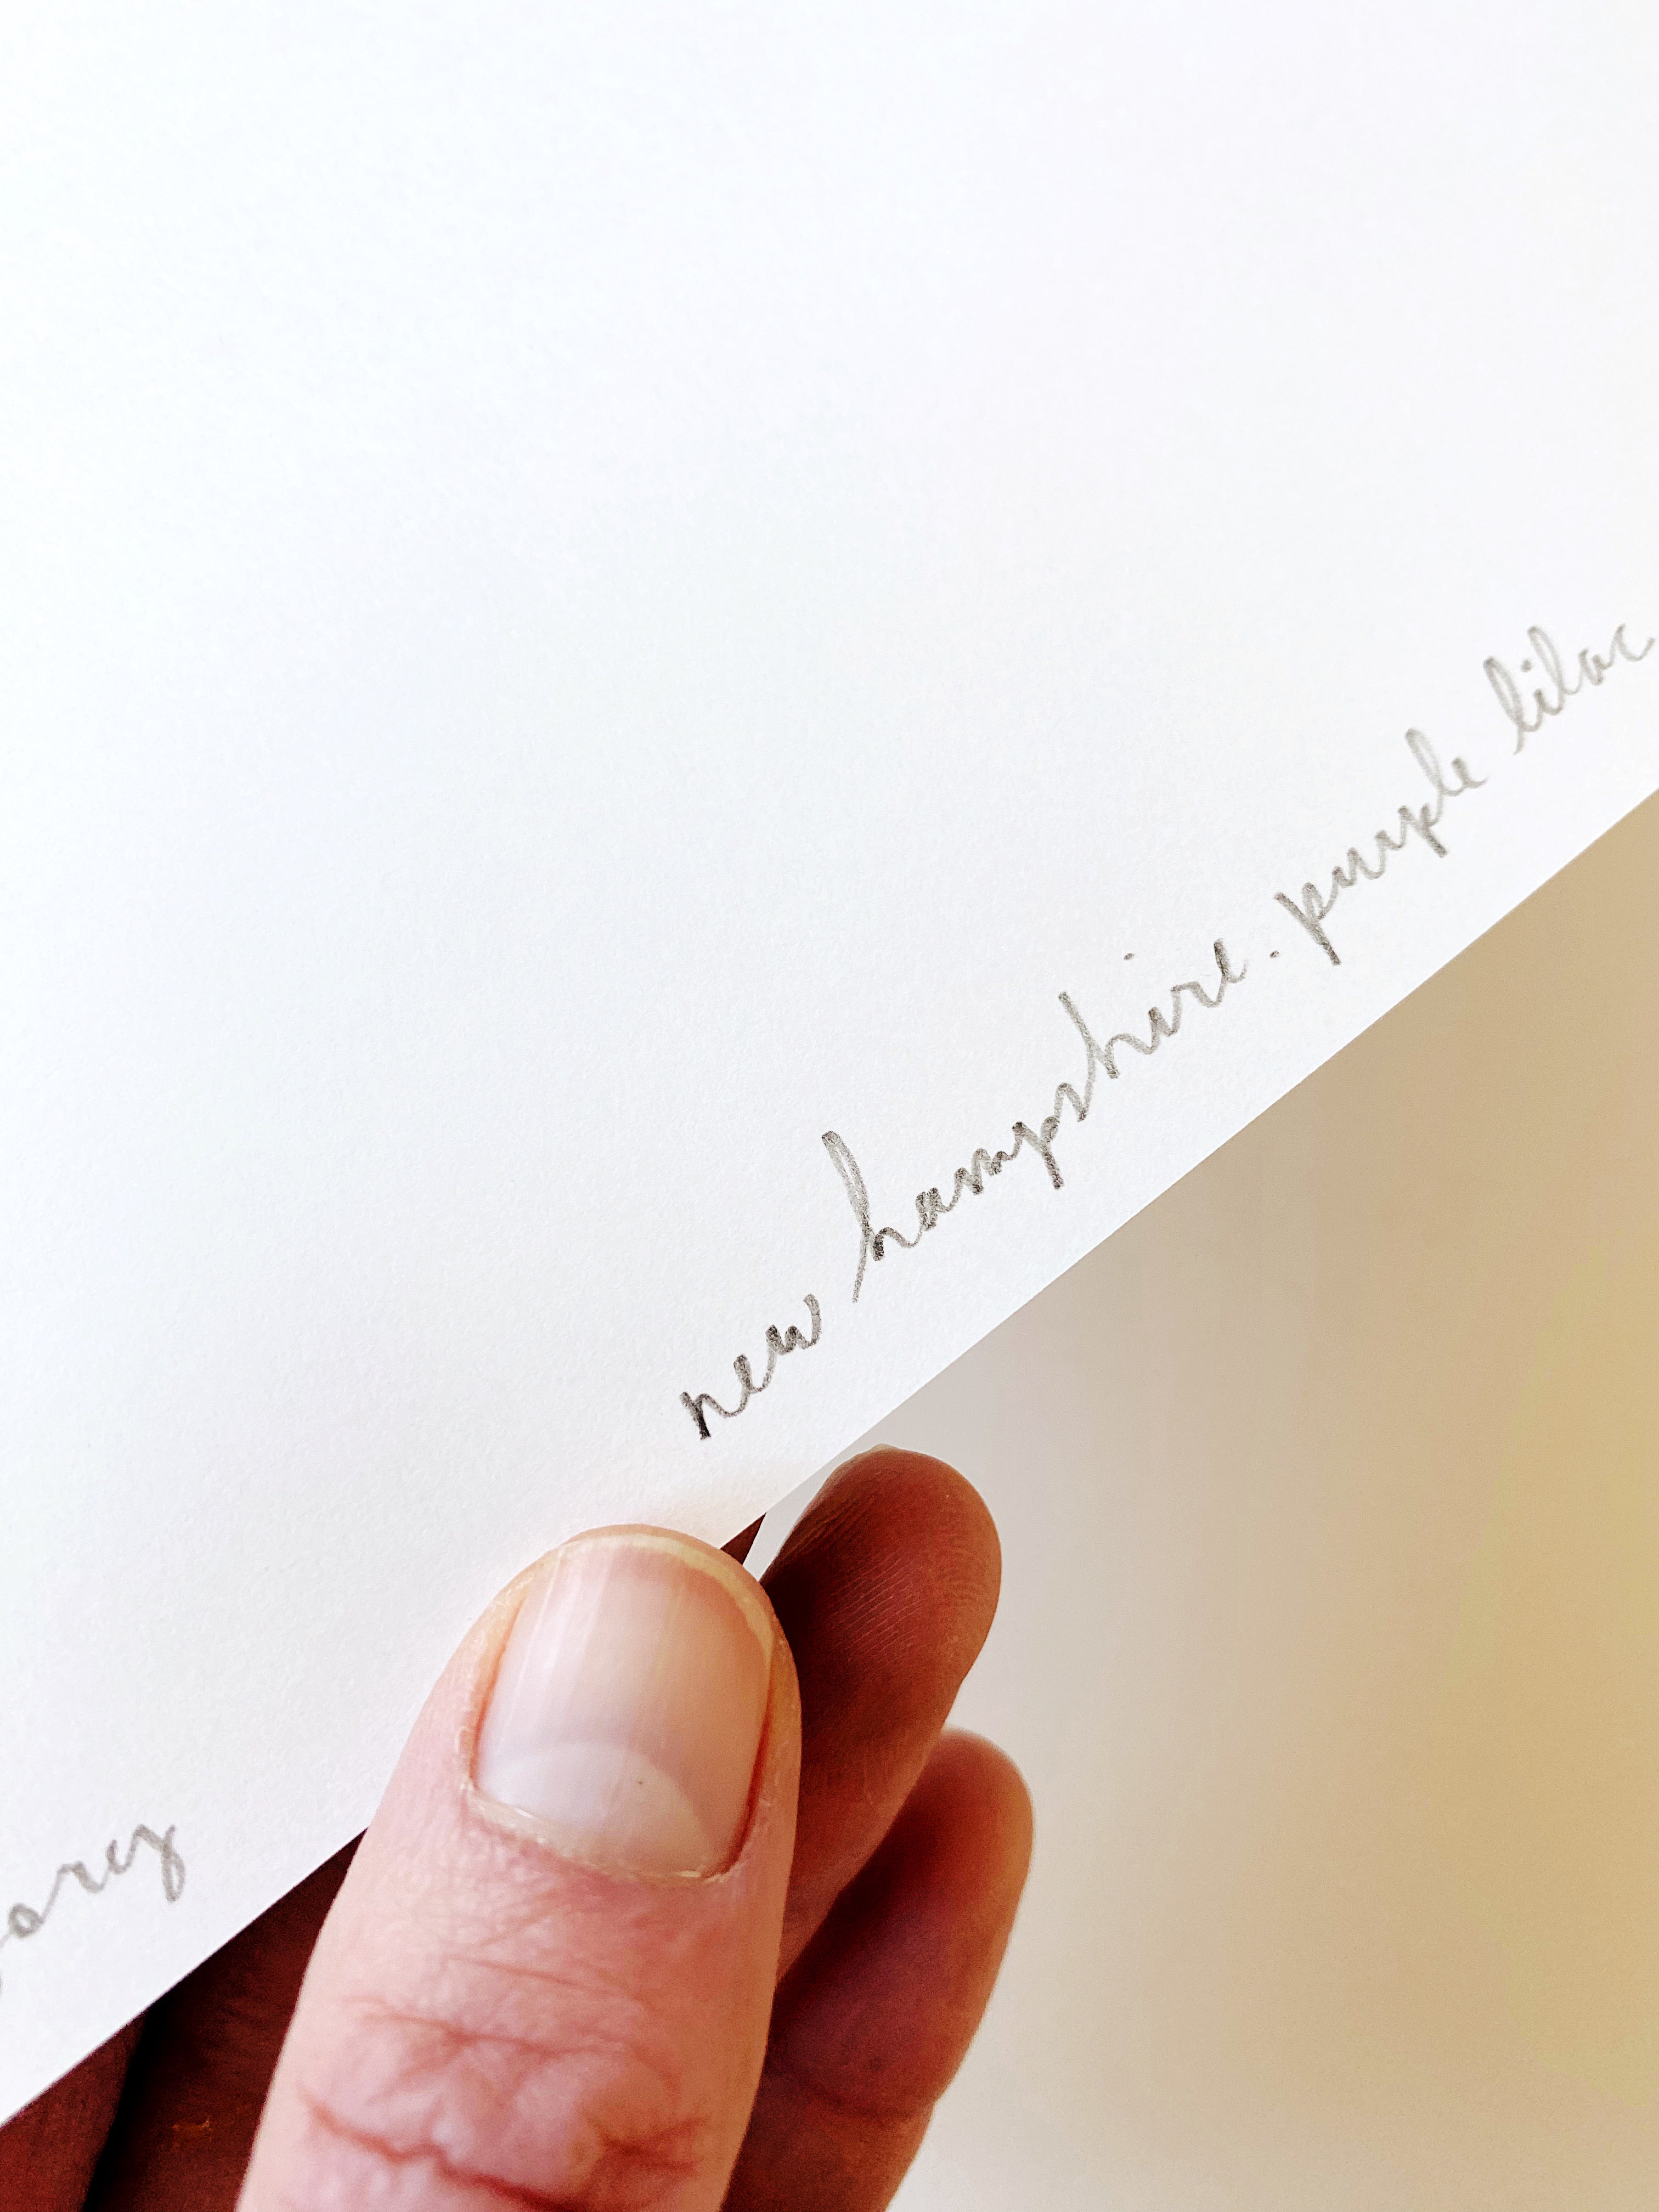 new hampshire. purple lilac